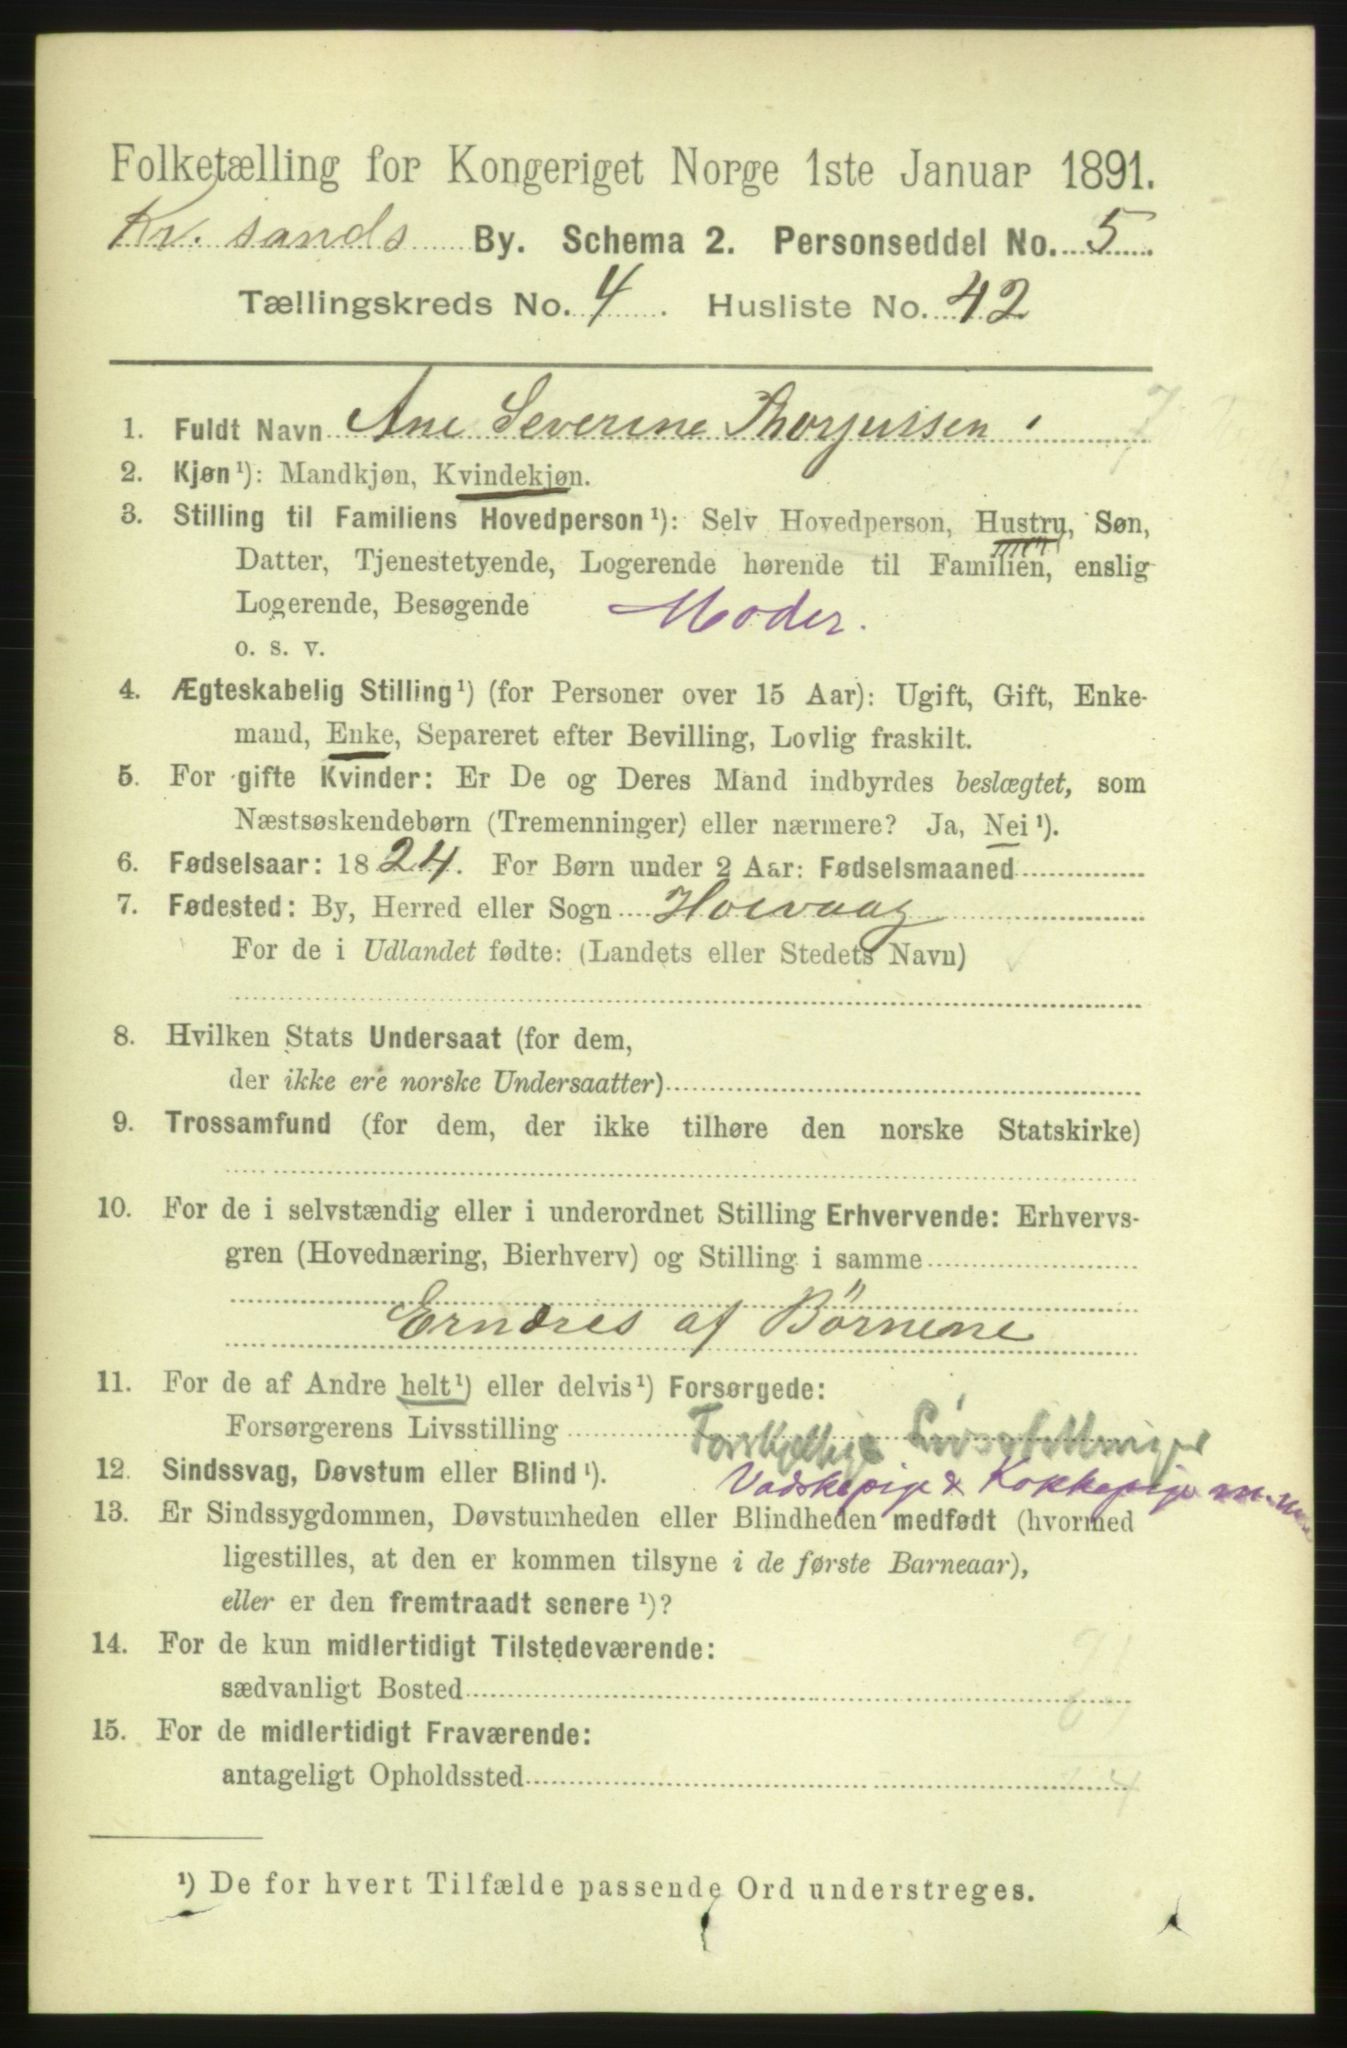 Folketælling for Kongeriget Norge 1ste Januar 1891.
Kr. sands By. Schema 2. Personseddel No. 5.
Tællingskreds No. 4. Husliste No. 42
1. Fuldt Navn Ane Severine Thorjussen
2. Kjøn¹): Mandkjøn, Kvindekjøn.
3. Stilling til Familiens Hovedperson¹): Selv Hovedperson, Hustru, Søn,
Datter, Tjenestetyende, Logerende hørende til Familien, enslig
Logerende, Besøgende Moder.
o. s. v.
4. Ægteskabelig Stilling¹) (for Personer over 15 Aar): Ugift, Gift, Enke-
mand, Enke, Separeret efter Bevilling, Lovlig fraskilt.
5. For gifte Kvinder: Er De og Deres Mand indbyrdes beslægtet, som
Næstsøskendebørn (Tremenninger) eller nærmere? Ja, Nei¹).
6. Fødselsaar: 1824. For Børn under 2 Aar: Fødselsmaaned
7. Fødested: By, Herred eller Sogn Hoevaag
For de i Udlandet fødte: (Landets eller Stedets Navn)
8. Hvilken Stats Undersaat (for dem,
der ikke ere norske Undersaatter)
9. Trossamfund (for dem, der ikke tilhøre den norske Statskirke)
10. For de i selvstændig eller i underordnet Stilling Erhvervende: Erhvervs-
gren (Hovednæring, Bierhverv) og Stilling i samme
Ernæres af Børnene
11. For de af Andre helt¹) eller delvis¹) Forsørgede:
Forsørgerens Livsstilling Forskjellige Livsstillinger
12. Sindssvag, Døvstum eller Blind¹). Vadskepige & Kokkepige m.m.
13. Er Sindssygdommen, Døvstumheden eller Blindheden medfødt (hvormed
ligestilles, at den er kommen tilsyne i de første Barneaar),
eller er den fremtraadt senere¹)?
14. For de kun midlertidigt Tilstedeværende:
sædvanligt Bosted
15. For de midlertidigt Fraværende:
antageligt Opholdssted
¹) De for hvert Tilfælde passende Ord understreges.